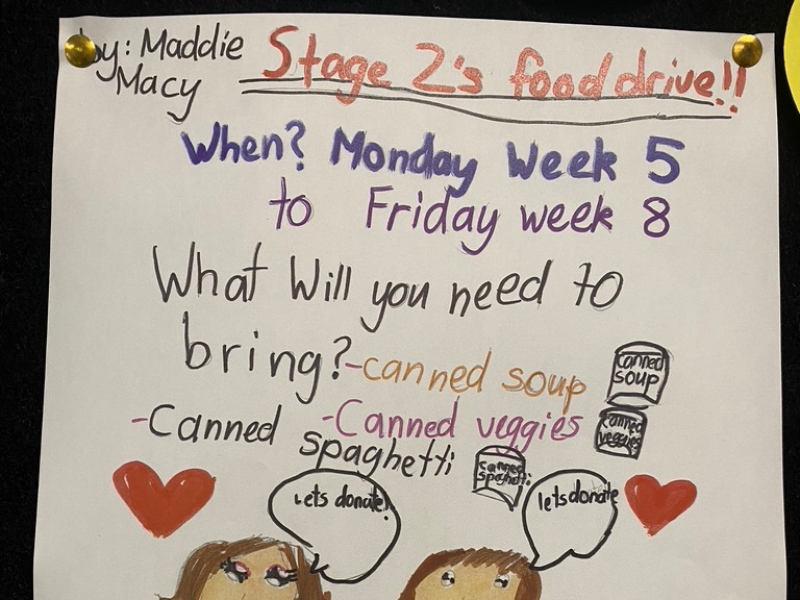 by: Maddie
Macy
Stage 2's food drive!!
When? Monday Week 5
to Friday week 8
What Will you need to
bring? -canned soup
canned
soup
-Canned spaghetti
-Canned veggies
canned
veggies
canned
spaghetti
Lets donate!
lets donate